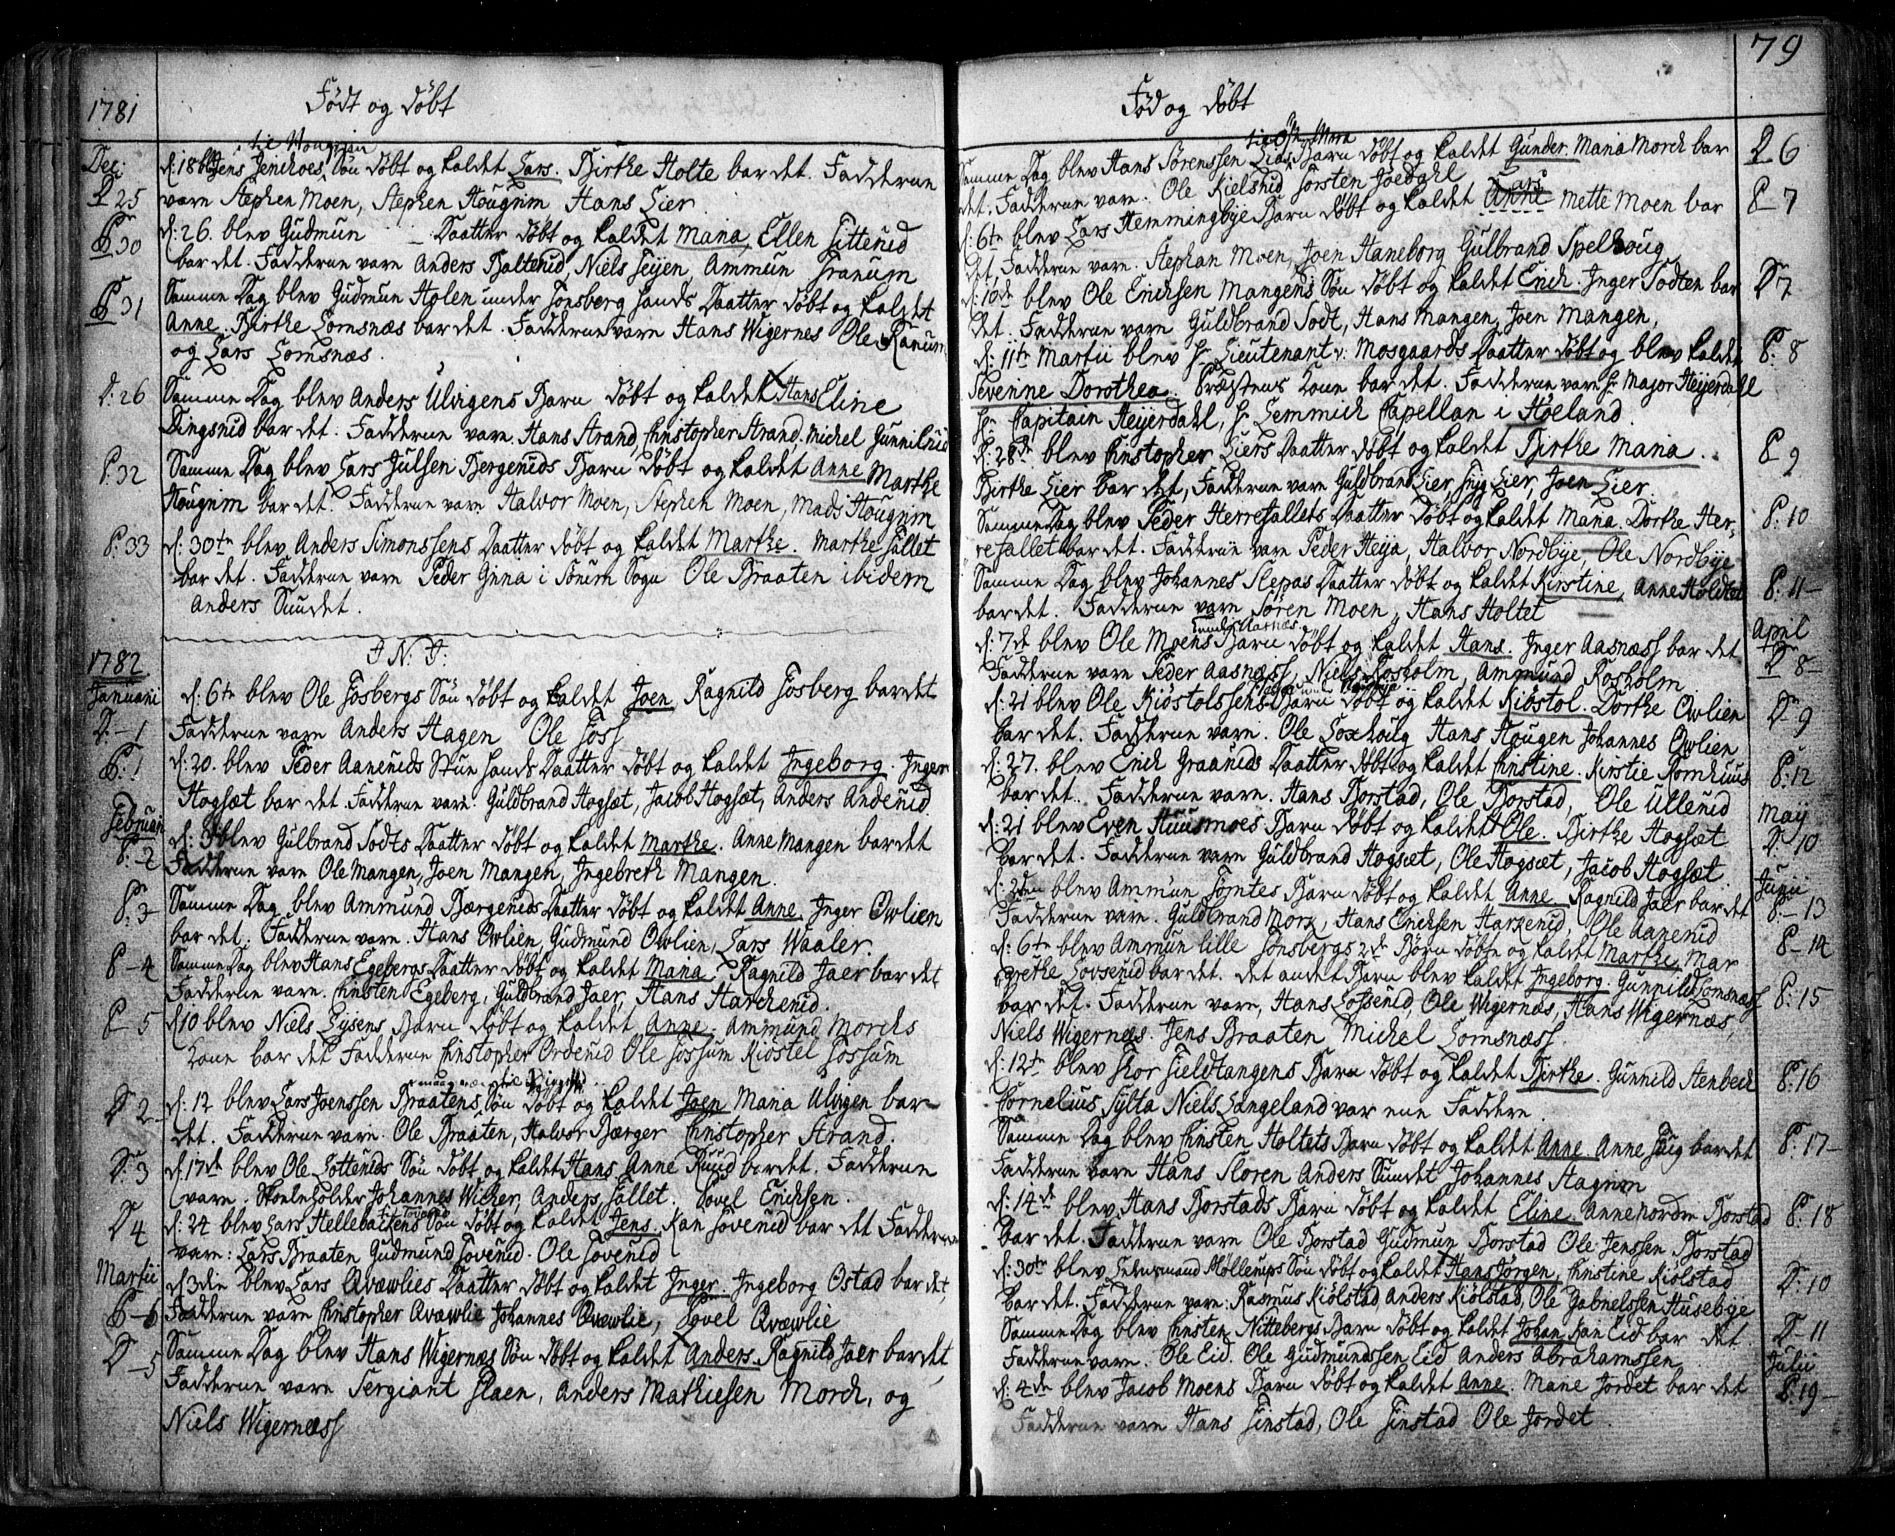 1781
Født og døbt
Deci
D 25
til Hougrim
d: 18 blev Jens Jenshoes Søn døbt og kaldet Lars. Birthe Holte bar det. Fadderne
vare Stephen Moen, Stephen Hougrim Hans Lier.
P 30
d: 26. blev Gudmun Daatter døbt og kaldet Maria, Ellen
bar det. Fadderne vare Anders Boltenid, Niels Seijen, Ammun Granum
P 31
Samme Dag blev Gudmun Holen under Tonsberg Lands Daatter døbt og kaldet
Anne. Birthe Lomsnæs bar det. Fadderne vare Hans Wigernes Ole Ranum
og Lars Lomsnæs.
D: 26
Samme Dag blev Anders Ulvigens Barn døbt og kaldet Hans Eline
Dingsrud bar det. Fadderne vare. Hans Strand, Christopher Strand. Michel
P: 32
Samme Dag blev Lars Julsen Bergeruds Barn døbt og kaldet Anne Marthe
Hougrim bar det. Fadderne vare Halvor Moen, Stephen Moen, Mads Hougrim
P: 33
d: 30te blev Anders Simonssens Daatter døbt og kaldet Marthe. Marthe Fallet
bar det. Fadderne vare Peder Grina i Sørum Sogn Ole Braaten ibidem
Anders Sundet.
1782
J. N. J:
Januarii
D: 1
d: 6te blev Ole Fosbergs Søn døbt og kaldet Joen. Ragnild Fosberg bar det
Fadderne vare Anders Hagen Ole Foss
P: 1
d: 20. blev Peder Aaneruds Stue Lands Daatter døbt og kaldet Ingeborg. Inger
Hogsæt bar det. Fadderne vare. Guldbrand Hogsæt, Jacob Hogsæt, Anders
Februarii
P: 2
d: 3 blev Gulbrand Todts Daatter døbt og kaldet Marthe. Anne Mangen bar det
Fadderne vare Ole Mangen, Joen Mangen, Ingebreth Mangen.
P: 3
Samme Dag blev Ammund Bærgeruds Daatter døbt og kaldet Anne Inger Owlien
bar det. Fadderne vare. Hans Owlien, Gudmund Owlien, Lars Waaler.
P - 4
Samme Dag blev Hans Egebergs Daatter døbt og kaldet Maria. Ragnild Jaer bar det
Fadderne vare. Christen Egeberg, Guldbrand Jaer, Hans Harchenid.
P - 5
d 10 blev Niels Lysens Barn døbt og kaldet Anne. Ammund Morchs
Kone bar det Fadderne Christopher Ordenid Ole Fossum Kiøstel Fossum
D 2
d: 12 blev Lars Joenssen Braatens Søn døbt og kaldet Joen Maria Ulvigen bar
det. Fadderne vare. Ole Braaten, Halvor Bærger Christopher Strand.
D. 3
d: 17de blev Ole Lottenids Søn døbt og kaldet Hans Anne Ruud bar det. Fadderne
vare. Skoeleholder Johannes Wicker, Anders Fallet. Povel Erichsen.
D 4
d: 24 blev Lars Hellebækens Søn døbt og kaldet Jens. Kari Tovenid bar det Fadderne
vare: Lars Braaten Gudmund Tovenid. Ole Tovenid
Martii
P - 6
d 3die blev Lars Qvævlies Daatter døbt og kaldet Inger. Ingeborg Ostad bar det
Fadderne vare Christopher Qvævlie Johannes Qvævlie, Povel Qvævlie
D - 5
Samme Dag blev Hans Wigernæs Søn døbt og kaldet Anders. Ragnild Jaer bar det,
Fadderne vare Sergiant Flaen, Anders Mathiesen Morch, og
Niels Wigernæss
79
Fød og døbt
D 6
Samme Dag blev Hans Sørenssen Lids Barn døbt og kaldet Gunder. Maria Morch bar
det. Fadderne vare. Ole Kielsrud Torsten Joedahl
P 7
d: 6te blev Lars Hemmingbye Barn døbt og kaldet Lars Mette Moen bar
det. Fadderne vare. Stephan Moen, Joen Haneborg Gulbrand Spelhoug
D 7
d: 10de blev Ole Erichsen Mangens Søn døbt og kaldet Erich. Inger Todten bar
det. Fadderne vare Guldbrand Todt, Hans Mangen, Joen Mangen,
P: 8
d: 11te Martii blev Hr Lieutenant v: Mosgaards Daatter døbt og blev kaldet
Severine Dorothea. Præstens Kone bar det. Fadderne vare Hr Major Heijerdahl
Hr Capitain Heijerdahl, Hr Lemmich Capellan i Høeland.
P 9
d: 28de blev Christopher Liers Daatter døbt og kaldet Birthe Maria.
Birthe Lier bar det, Fadderne vare Guldbrand Lier Lier, Joen Lier
P: 10
Samme Dag blev Peder Herrefallets Daatter døbt og kaldet Maria. Dorthe Her-
refallet bar det. Fadderne vare Peder Heija, Halvor Nordbye, Ole Nordbye
P: 11 -
Samme Dag blev Johannes Slepas Daatter døbt og kaldet Kirstine, Anne
bar det. Fadderne vare Søren Moen, Hans Holtet
April
D 8
d: 7de blev Ole Moens Barn døbt og kaldet Hans. Inger Aasnæss bar det
Fadderne vare Peder Aasnæss, Niels Rosholm, Ammund Rosholm
D 9
d: 21 blev Ole Kiøstolssens Barn døbt og kaldet Kiøstol. Dorthe Owlien
bar det. Fadderne vare. Ole Hans Hougen Johannes Owlien
P: 12
d: 27. blev Erich Graaruds Daatter døbt og kaldet Christine. Kirstie Romhuus
bar det. Fadderne vare. Hans Borstad, Ole Borstad, Ole Ullerud
May
D: 10
d: 21 blev Even Huusmoes Barn døbt og kaldet Ole. Birthe Hogsæt
bar det. Fadderne vare Guldbrand Hogsæt, Ole Hogsæt, Jacob Hogsæt
Junii
P - 13
d: 2den blev Ammun Tomtes Barn døbt og kaldet Anne. Ragnild Jaer bar det
Fadderne vare. Guldbrand Morch, Hans Erichsen Harkenid, Ole Aanerud
P - 14
d: 6te blev Ammun lille Tonsbergs 2de Børn døbt og kaldet Marthe, Mar
grethe Lovsenid bar det. det andet Barn blev kaldet Ingeborg. Gunnild Lomsnæss
P: 15
bar det. Fadderne vare, Hans Lofsenid, Ole Wigernæs, Hans Wigernæs,
Niels Wigernæs. Jens Braaten Michel Lomsnæss.
P: 16
d: 12te blev Thor Fieldtangens Barn døbt og kaldet Birthe. Gunnild Stenbech
Cornelius Sylta Niels Langeland var ene Faddere.
P: 17 -
Samme Dag blev Christen Holtets Barn døbt og kaldet Anne. Anne Haug bar det
Fadderne vare Hans Floren Anders Sundet Johannes Hagrim
P: 18
d: 14de blev Hans Borstads Barn døbt og kaldet Eline Anne nordre Borstad
bar det. Fadderne vare Ole Borstad Gudmun Borstad Ole Jenssen Borstad
D: 10
d: 30te blev Lehnsmand Møllerups Søn døbt og kaldet Hans Jørgen, Christine Kiølstad
bar det. Fadderne vare: Rasmus Kiølstad, Anders Kiølstad, Ole Gabrielssen Husebye
D - 11
Samme Dag blev Christen Nittebergs Barn døbt og kaldet Johan Kari Eid bar det
Fadderne vare. Ole Eid. Ole Gudmundssen Eid Anders Abrahamssen
Julii
P: 19 -
d: 4de blev Jacob Moens Barn døbt og kaldet Anne. Marie Jordet bar det
Fadderne vare Hans Finstad, Ole Finstad Ole Jordet.